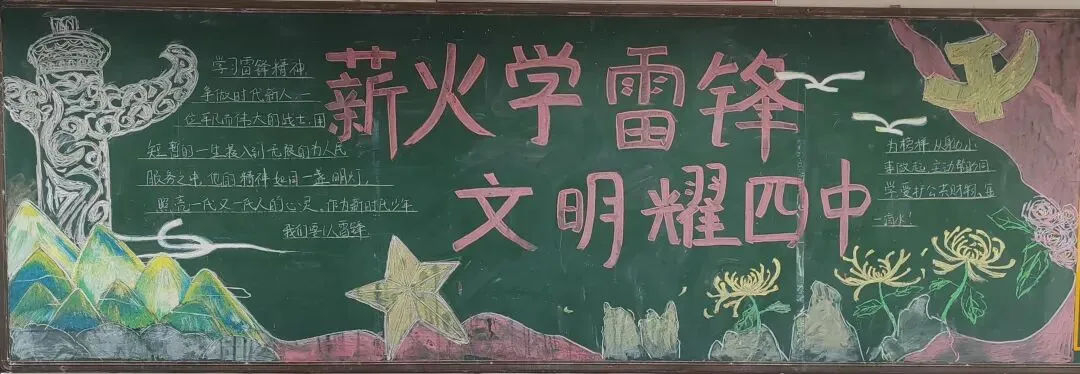 薪火学雷锋
文明耀四中
学习雷锋精神
争做时代新人,一
位平凡而伟大的战士,用
短暂的一生投入到无限的为人民
服务之中,他的精神如同一盏明灯,
照亮一代又一代人的心灵,作为新时代少年
我们要以雷锋
为榜样,从身边小
事做起,主动帮助同
学,爱护公共财物,
一滴水!